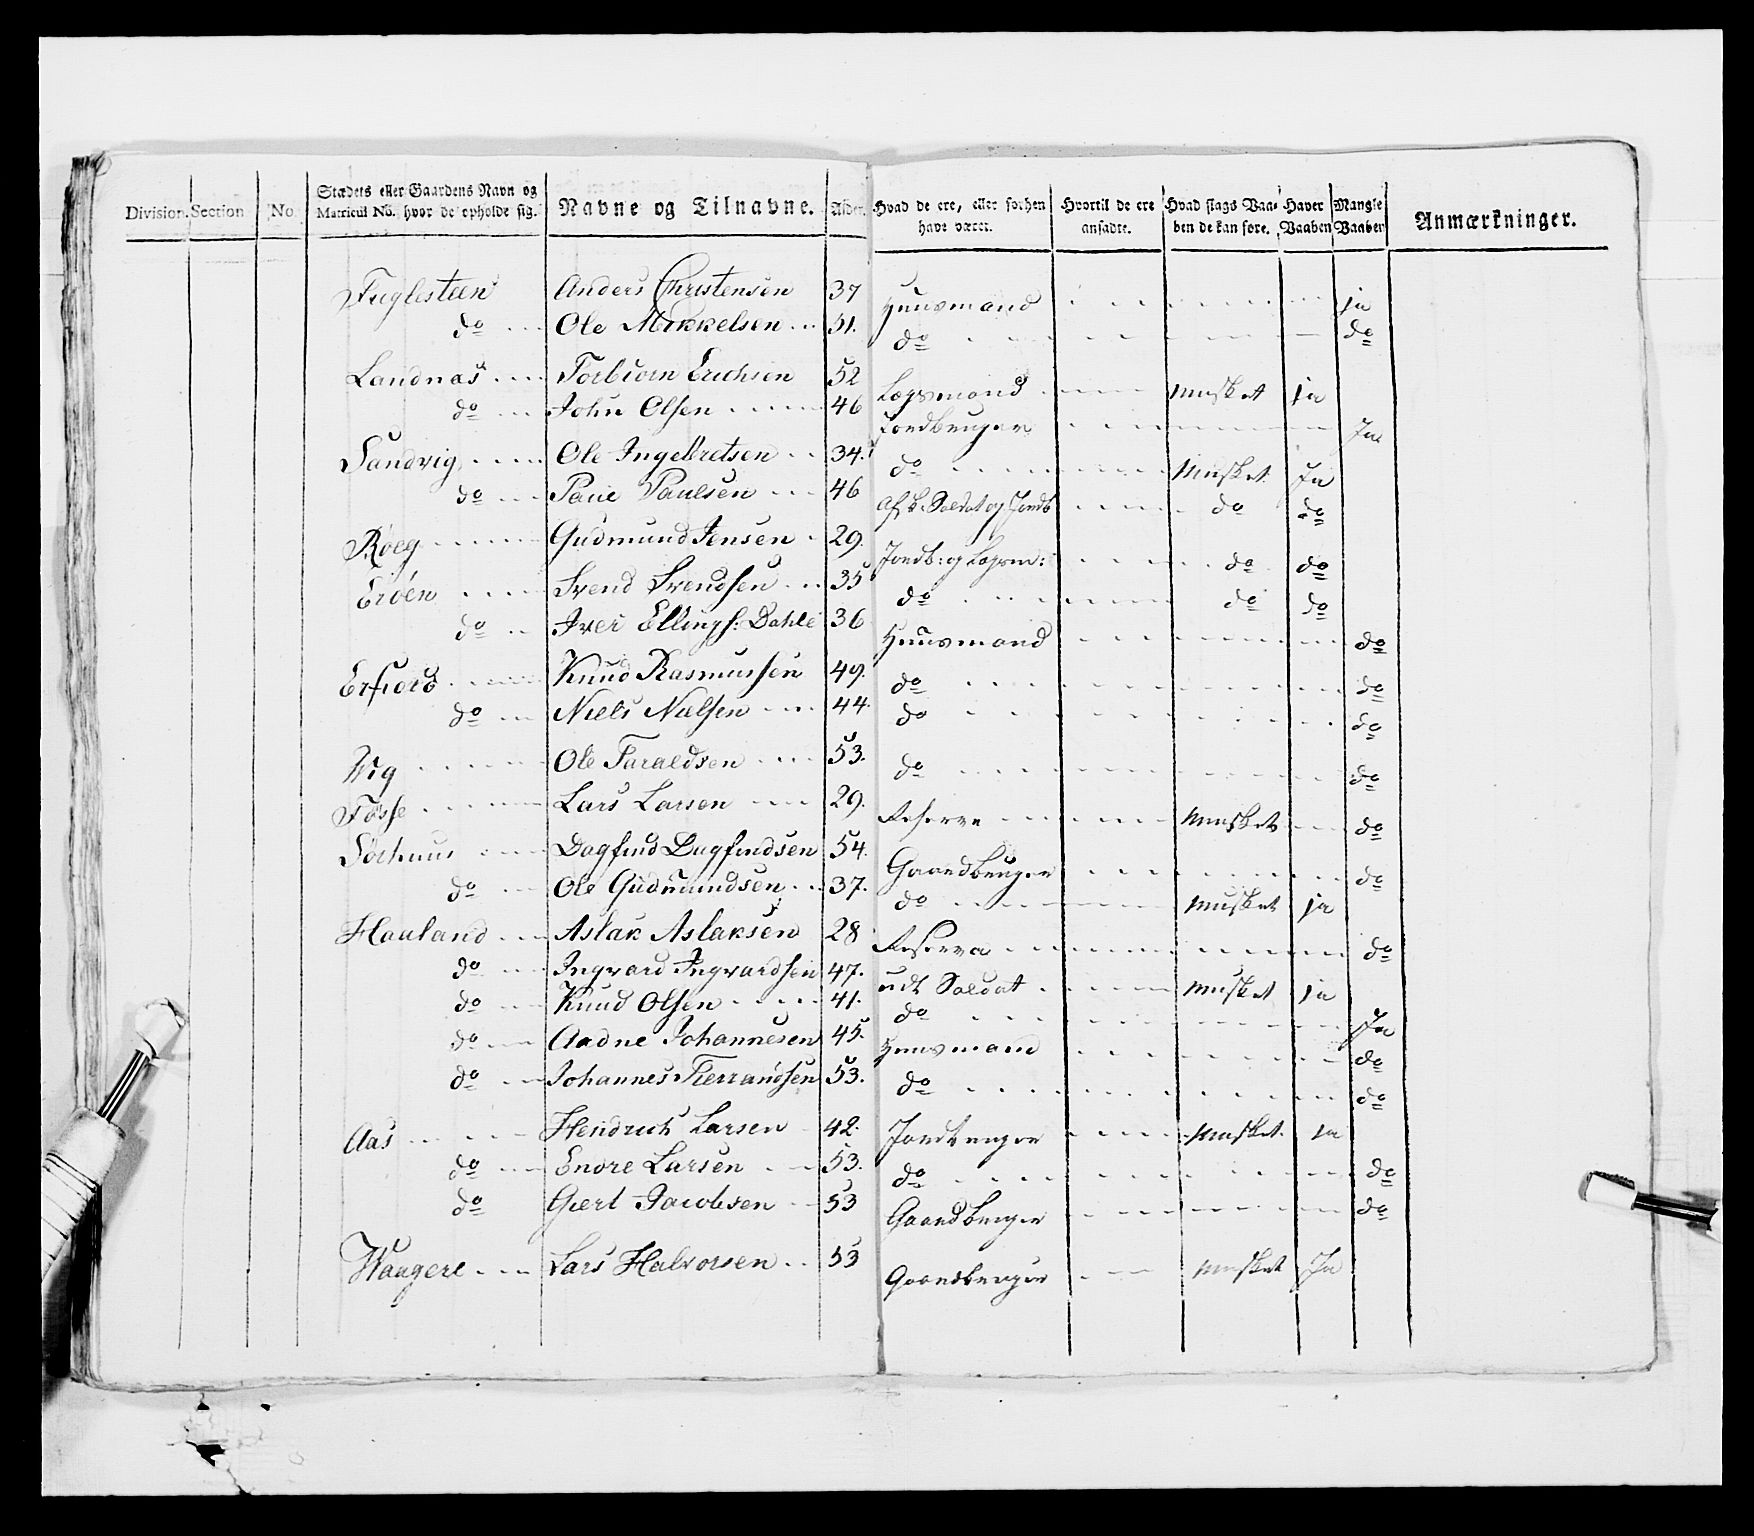 Division. Section No. Stædets eller Gaardens Navn og Matricul No. hvor de opholde sig. Navne og Tilnavne. Alder. Hvad de ere, eller forhen have været. Hvortil de ere ansadte. Hvad slags Vaaben de kan føre. Haver Vaaben Mangle Vaaben Anmærkninger.
Fuglesteen Anders Christensen 37 Huusmand ja
do Ole Mikkelsen 51. do do
Landnæs Torbiørn Erichsen 52 Logsmand Musket ja
do John Olsen 46 Jordbruger Ja
Sandvig Ole Ingebretsen 34. do Musket Ja
do Paue Paulsen 46 Afsk. Soldat og Jordb do do
Røeg Gudmund Jensen 29. Jordb: og Logsm: do do
Erøen Svend Svendsen 35 do do do
do Iver Ellings: Dahle 36 Huusmand do
Erfiord Knud Rasmussen 49. do do
do Niels Nielsen 44. do do
Vig Ole Taraldsen 53. do do
Fosse Lars Larsen 29. Reserve Musket do
Sørhuus Dagfind Dagfindsen 54. Gaardbruger do
do Ole Gudmundsen 37. do Musket ja
Haaland Aslak Aslaksen 28 Reserve do
do Ingvard Ingvardsen 47. udt Soldat Musket ja
do Knud Olsen 41. do Ja
do Aadne Johannesen 45. Huusmand do
do Johannes Tierrandsen 53. do do
Aas Hendrich Larsen 42. Jordbruger Musket ja
do Endre Larsen 53. do do
do Giert Jacobsen 53 Gaardbruger do
Waagere Lars Halvorsen 53 Gaardbruger Musket Ja